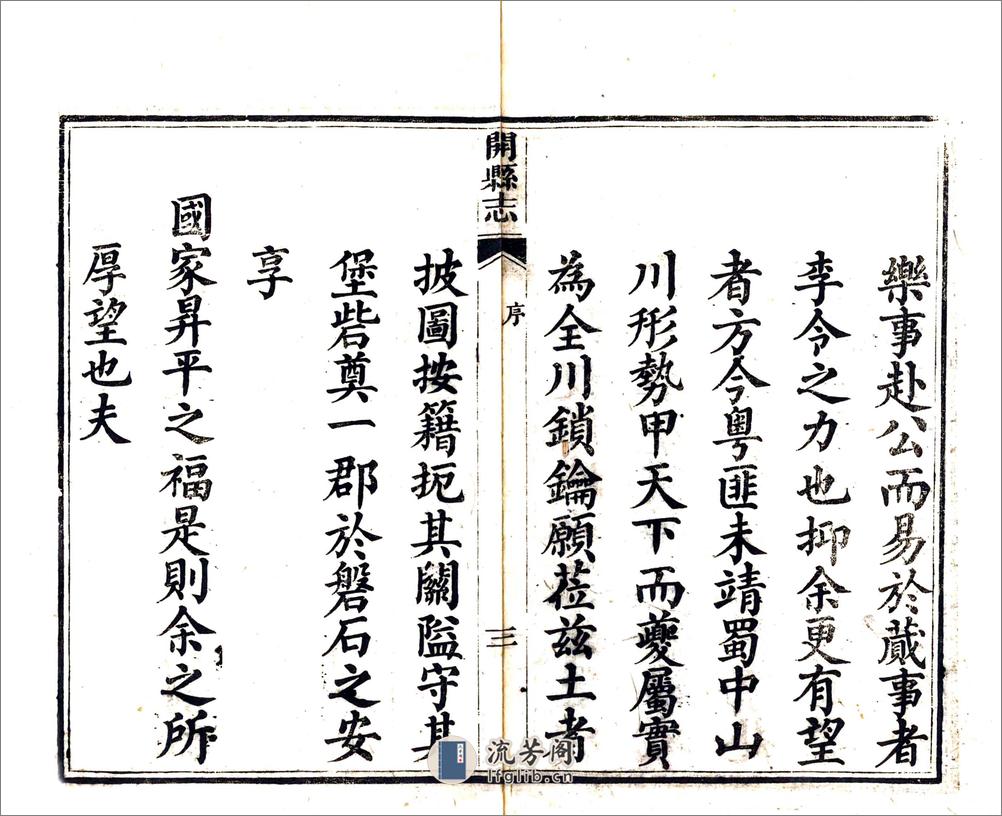 樂事赴公而易於蕆事者
李令之力也抑余更有望
者方今粵匪未靖蜀中山
川形勢甲天下而夔屬實
為全川鎖鑰願莅茲土者
開縣志
序
三
披圖按籍扼其關隘守其
堡砦奠一郡於磐石之安
享
國家昇平之福是則余之所
厚望也夫
流芳阁
lfglib.cn